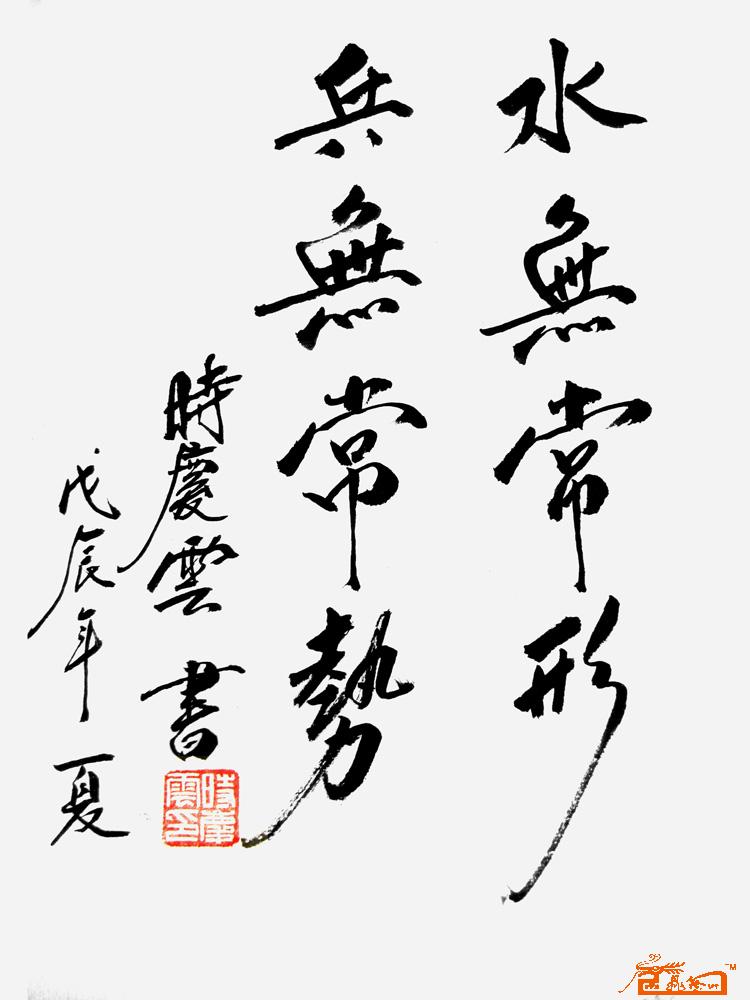 水無常形
兵無常勢
時慶雲 書
戊辰年夏
時慶雲印